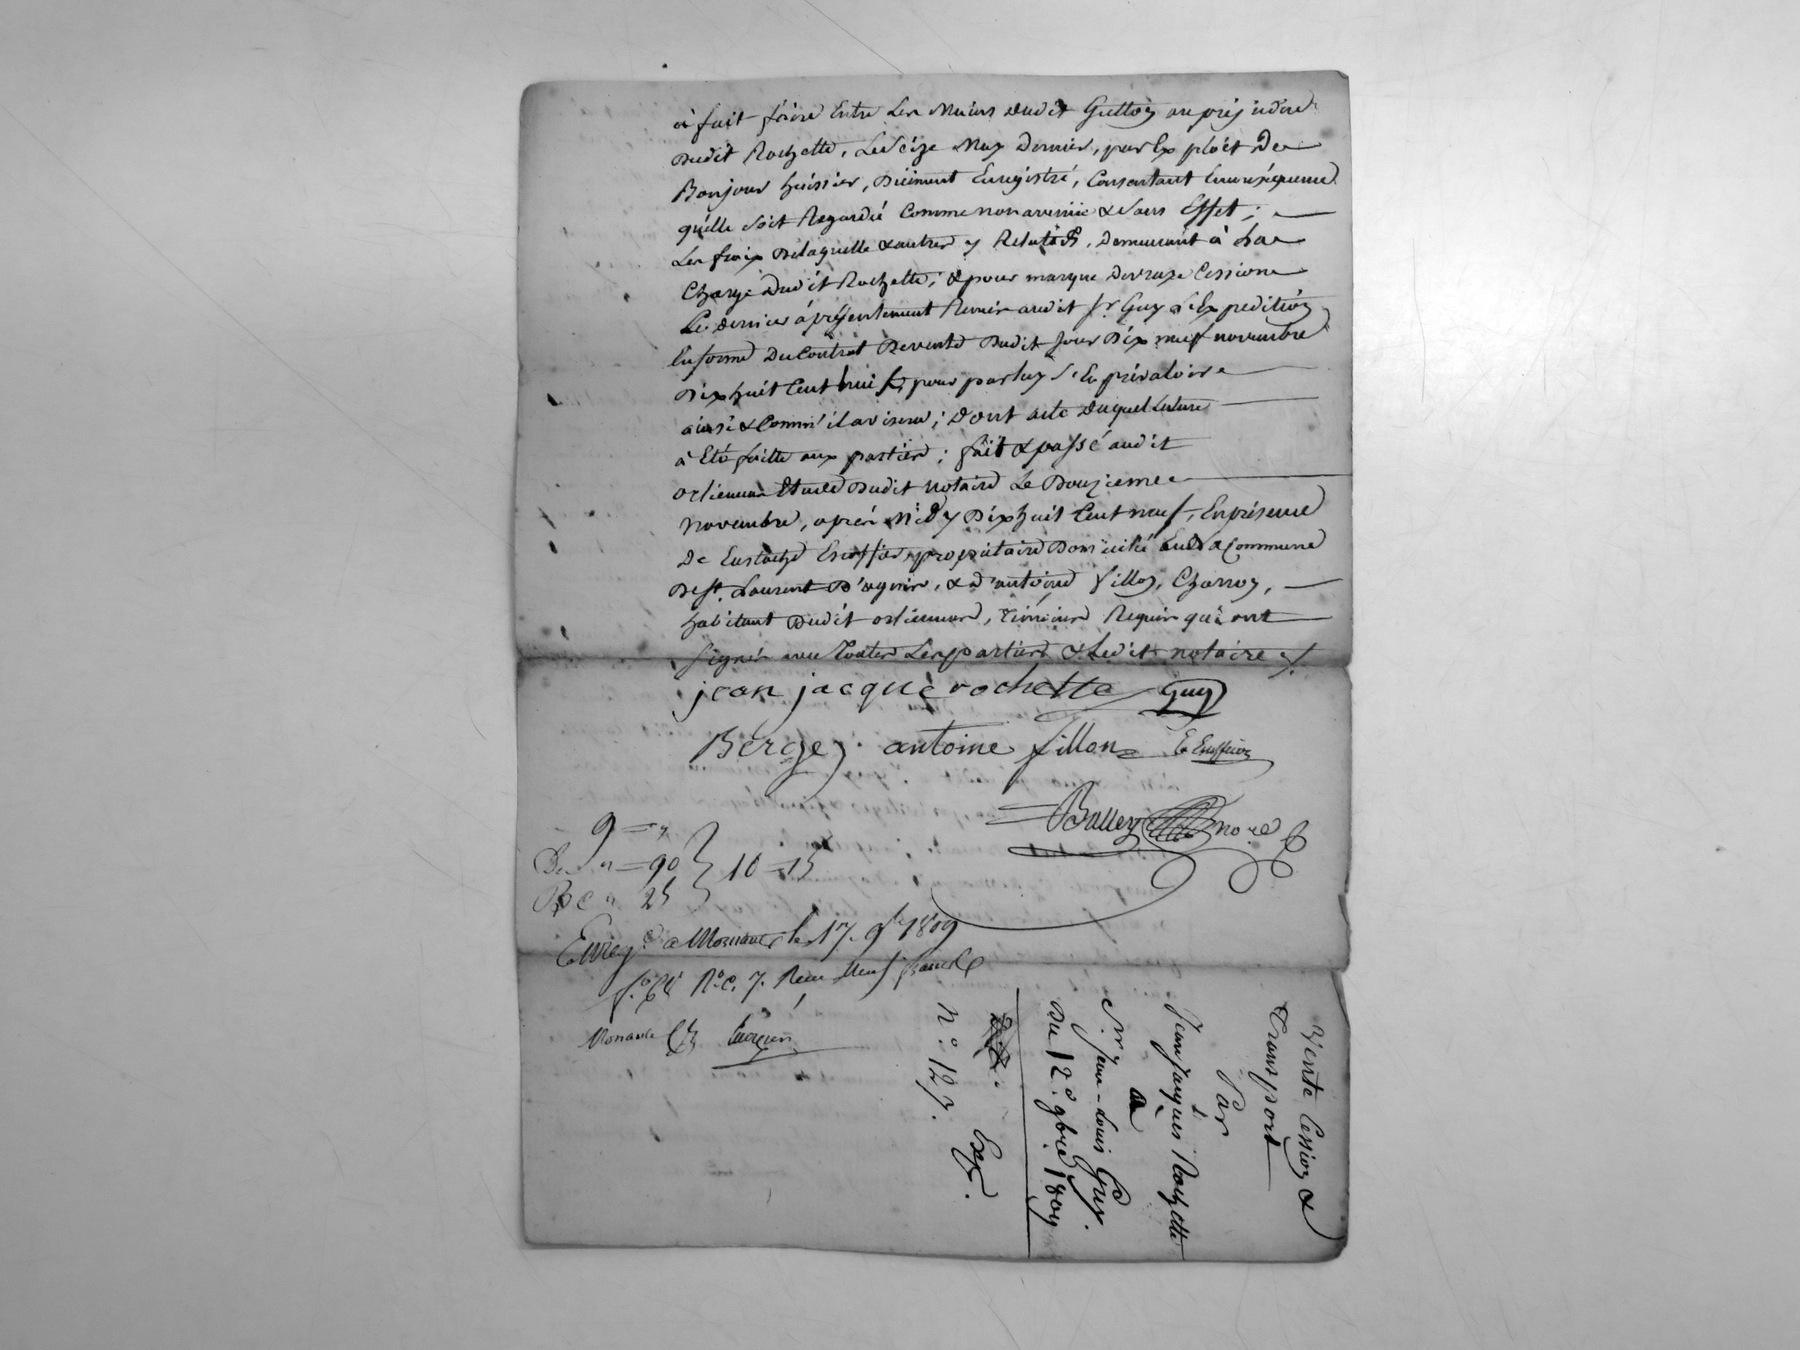 à fait faire Entre Les Mains dudit Guillon au préjudice
dudit Rochette, Le seize May dernier, par Exploit De
Bonjour huissier, Düement Enregistré, Consentant
qu'elle soit Regardé Comme non avenüe & sans Effet;
Les fraix Delaquelle & autres y Relatifs, demeurant à La
Charge dudit Rochette; & pour marque Cession
Ce dernier à présentement Remis audit Sr Guy L'Expedition
En forme Du Contrat De vente dudit jour Dix neuf novembre
Dix huit Cent huit, pour par luy s'En prévaloir
ainsi & Comm' il avisera; Dont acte Duquel Lecture
à Eté faitte aux parties; fait & passé audit
orlienas Etude Dudit Notaire Le Douzieme
Novembre, après Midy Dix huit Cent neuf, En présence
De Eustache Escoffier propriétaire Domicilié La Commune
De St. Laurent D'agnin, & D'antoine fillon, Charron,
habitant Dudit orlienas, témoins Requis qui ont
Signés avec Toutes Les parties & Ledit notaire
jean jacque rochette Guy
Berger antoine fillon E Escoffier
Balley nore
9 =
De = 90 } 10 - 15
25
Enregé à Mornant le 17. 9bre 1809
fo. Ro. C. 7. Reçu Neuf francs
Vente Cession &
Transport
Par
Jean Jacques Rochette
à
Sr. Jean-Louis Guy.
Du 12e. 9bre 1809
Exp.
No. 127.